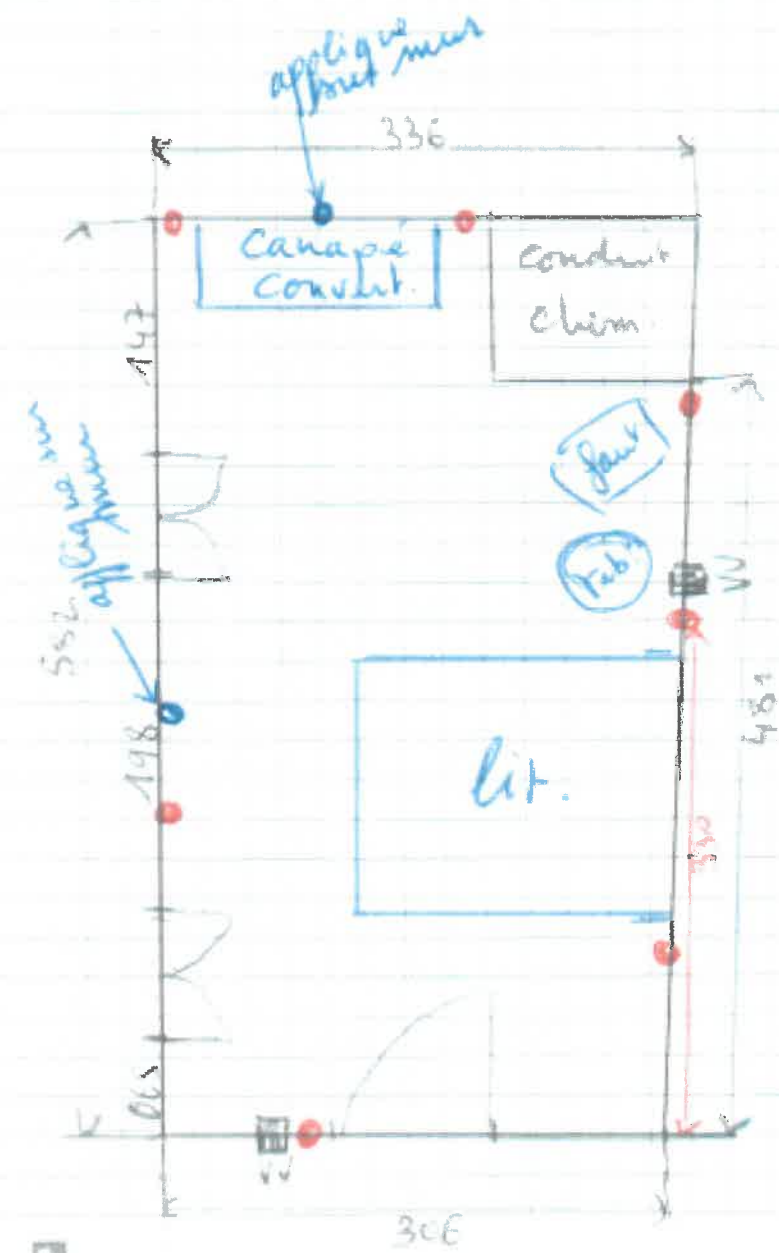 applique
sur mur
336
Canapé
Convert.
conduit
chim.
147
applique sur
mur
faut
Tab.
VV
198
lit.
481
VV
306